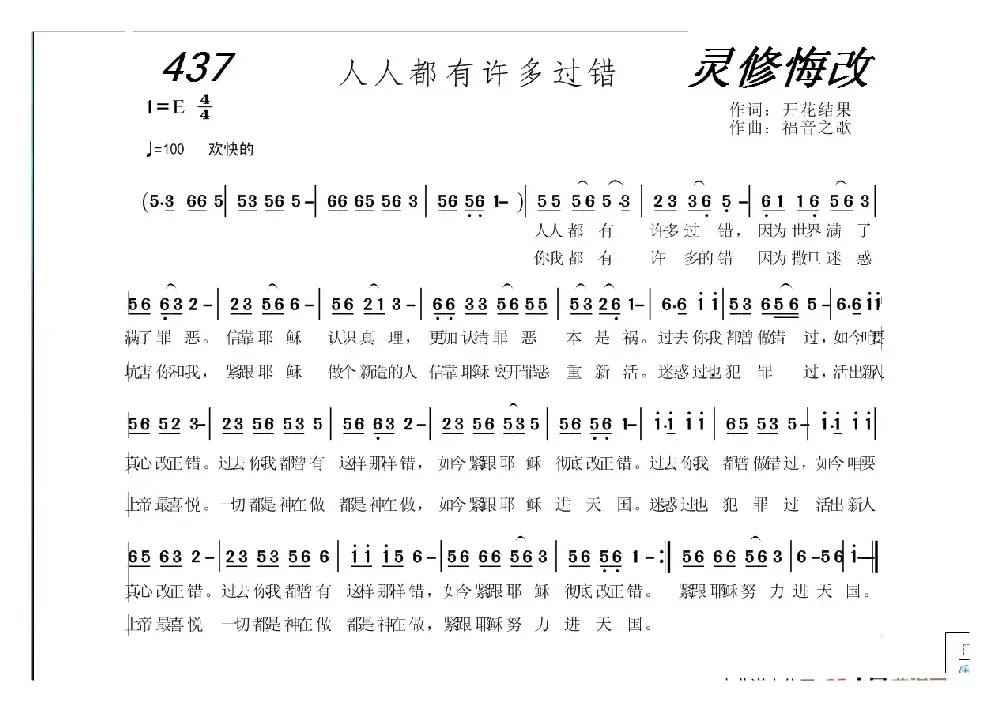 437 人人都有许多过错 灵修悔改
1=E 4/4
作词：开花结果
作曲：福音之歌
♩=100 欢快的
(5·3 66 5| 53 56 5-| 66 65 56 3| 56 56 1-)| 55 56 5·3| 23 36 5-| 61 16 56 3|
人人都有 许多过错，因为世界满了
你我都有 许多的错 因为撒旦迷惑
56 63 2-| 23 56 6-| 56 21 3-| 66 33 56 55| 53 26 1-| 6·6 i i| 53 656 5-| 6·6 ii|
满了罪恶。信靠耶稣 认识真理，更加认清罪恶 本是祸。过去你我都曾做错过，如今咱要
坑害你和我，紧跟耶稣 做个新造的人 信靠耶稣离开罪恶 重新活。迷惑过也犯罪过，活出新人
56 52 3-| 23 56 53 5| 56 63 2-| 23 56 53 5| 56 56 1-| i·i ii| 65 53 5-| i·i ii|
真心改正错。过去你我都曾有 这样那样错，如今紧跟耶稣 彻底改正错。过去你我 都曾做错过，如今咱要
上帝最喜悦。一切都是神在做 都是神在做，如今紧跟耶稣 进天国。迷惑过也 犯罪过 活出新人
65 63 2-| 23 53 56 6| ii i5 6-| 56 66 56 3| 56 56 1-:| 56 66 56 3| 6-56| i--‖
真心改正错。过去你我都曾有 这样那样错，如今紧跟耶稣 彻底改正错。 紧跟耶稣努力进天国。
上帝最喜悦 一切都是神在做 都是神在做，紧跟耶稣努力进天国。